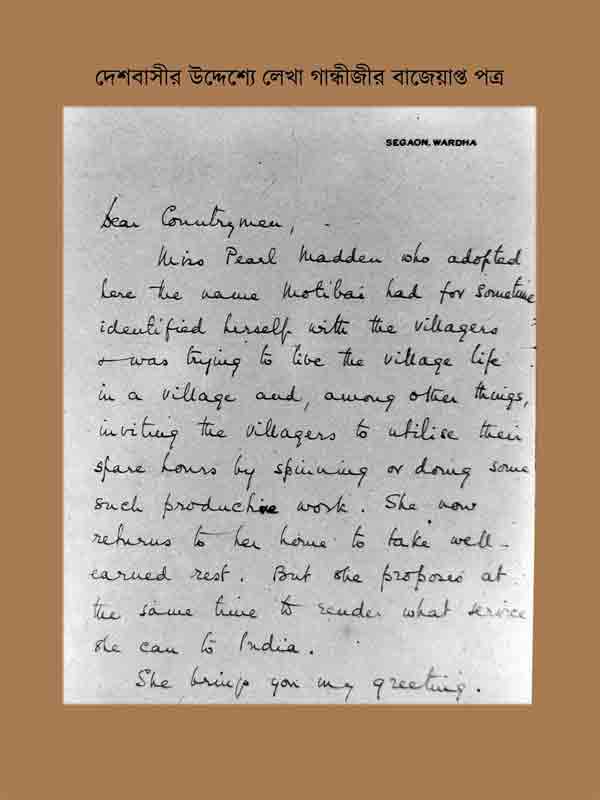 দেশবাসীর উদ্দেশ্যে লেখা গান্ধীজীর বাজেয়াপ্ত পত্র
SEGAON, WARDHA
Dear Countrymen,
Miss Pearl Madden who adopted
here the name Motibai had for sometime
identified herself with the villagers
& was trying to live the village life
in a village and, among other things,
inviting the villagers to utilise their
spare hours by spinning or doing some
such productive work. She now
returns to her home to take well-
earned rest. But she proposes at
the same time to render what service
she can to India.
She brings you my greeting.